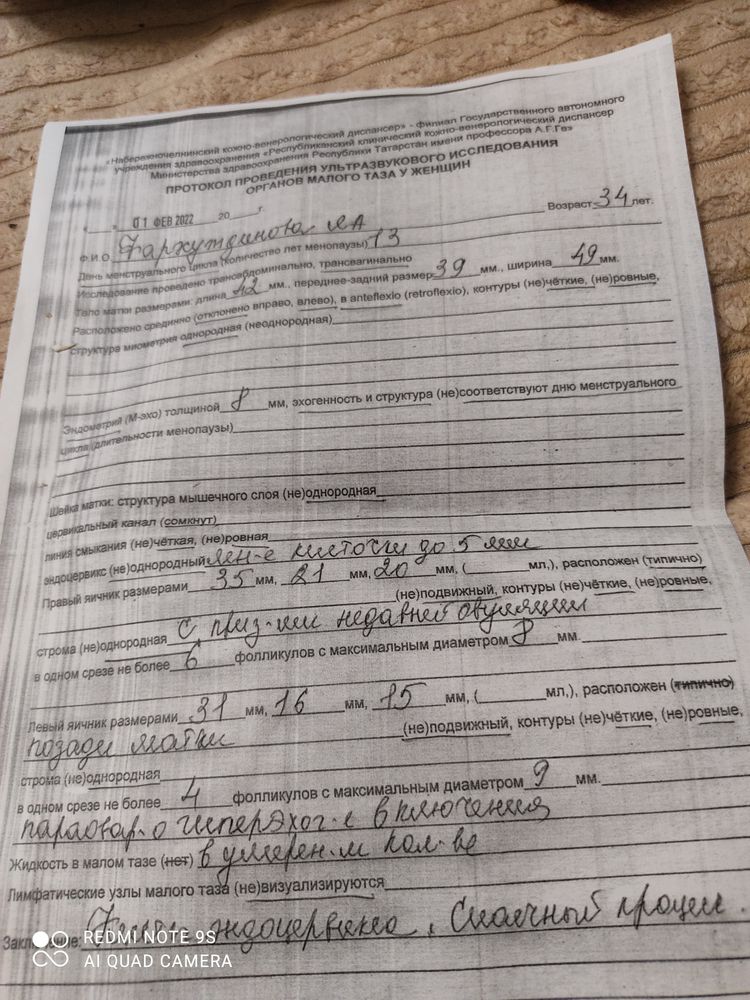 «Набережночелнинский кожно-венерологический диспансер» - филиал Государственного автономного
учреждения здравоохранения «Республиканский клинический кожно-венерологический диспансер
Министерства здравоохранения Республики Татарстан имени профессора А.Г.Ге»
ПРОТОКОЛ ПРОВЕДЕНИЯ УЛЬТРАЗВУКОВОГО ИССЛЕДОВАНИЯ
ОРГАНОВ МАЛОГО ТАЗА У ЖЕНЩИН
« » 01 ФЕВ 2022 20 г.
Возраст 34 лет.
Ф.И.О. Фархутдинова
День менструального цикла (количество лет менопаузы) 13
Исследование проведено трансабдоминально, трансвагинально
Тело матки размерами: длина 42 мм., переднее-задний размер 39 мм., ширина 49 мм.
Расположено срединно (отклонено вправо, влево), в anteflexio (retroflexio), контуры (не)чёткие, (не)ровные,
структура миометрия однородная (неоднородная)
Эндометрий (М-эхо) толщиной 8 мм, эхогенность и структура (не)соответствуют дню менструального
цикла (длительности менопаузы)
Шейка матки: структура мышечного слоя (не)однородная
цервикальный канал (сомкнут)
линия смыкания (не)чёткая, (не)ровная
эндоцервикс (не)однородный кисточки до 5 мм
Правый яичник размерами 35 мм, 21 мм, 20 мм, ( мл,), расположен (типично)
(не)подвижный, контуры (не)чёткие, (не)ровные,
строма (не)однородная с приз-ми недавней овуляции
в одном срезе не более 6 фолликулов с максимальным диаметром 8 мм.
Левый яичник размерами 31 мм, 16 мм, 15 мм, ( мл,), расположен (типично)
позади матки (не)подвижный, контуры (не)чёткие, (не)ровные,
строма (не)однородная
в одном срезе не более 4 фолликулов с максимальным диаметром 9 мм.
параовар-о гиперэхог-е включения
Жидкость в малом тазе (нет) в умерен-м кол-ве
Лимфатические узлы малого таза (не)визуализируются
эндоцервикса. Спаечный процесс.
REDMI NOTE 9S
AI QUAD CAMERA